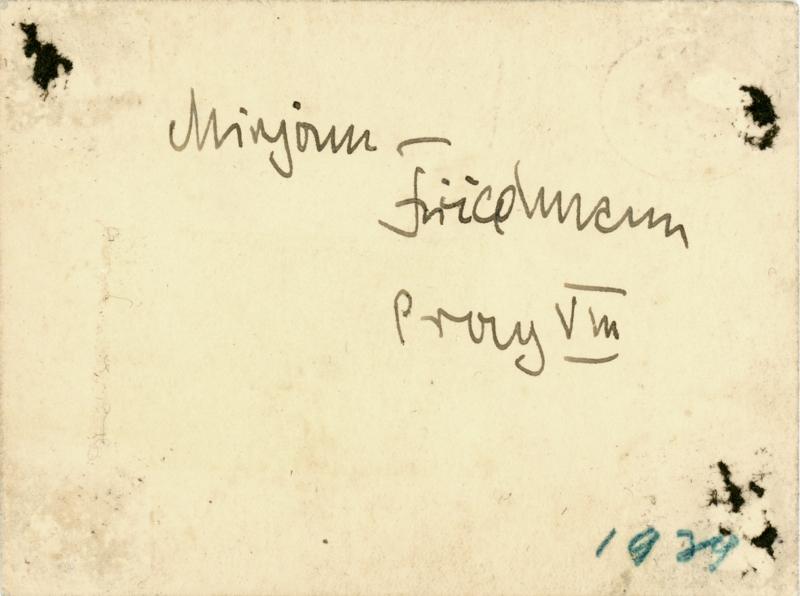 Mirjam –
Friedmann
Prag VIII
1939